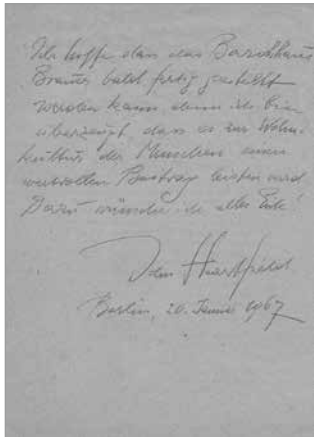 Ich hoffe dass das
bald fertig gestellt
werden kann denn ich bin
überzeugt, dass es zur Wohn-
kultur der Menschen einen
wertvollen Beitrag leisten wird.
Dazu wünsche ich alles Gute!
John Heartfield
Berlin, 20. 1967